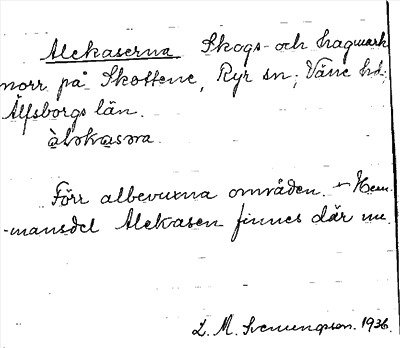 Alekaserna Skogs- och hagmark
norr på Skottene, Ryr sn; Väne hd;
Älfsborgs län.
àlekasəra
Förr albevuxna områden. - Hem-
-mansdel Alekasen finnes där nu.
L. M. Svenungsson. 1936.